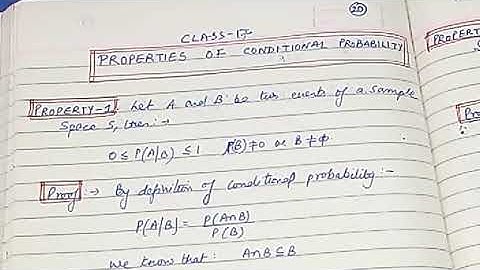 20
CLASS-17
PROPERTIES OF CONDITIONAL PROBABILITY
PROPERTY-1 Let A and B be two events of a sample
Space S, then:→
0 ≤ P(A/B) ≤ 1 P(B)≠0 or B≠ϕ
Proof :→ By definition of conditional probability:-
P(A/B) = P(A∩B)
P(B)
We know that: A∩B⊆B
PROPERTY